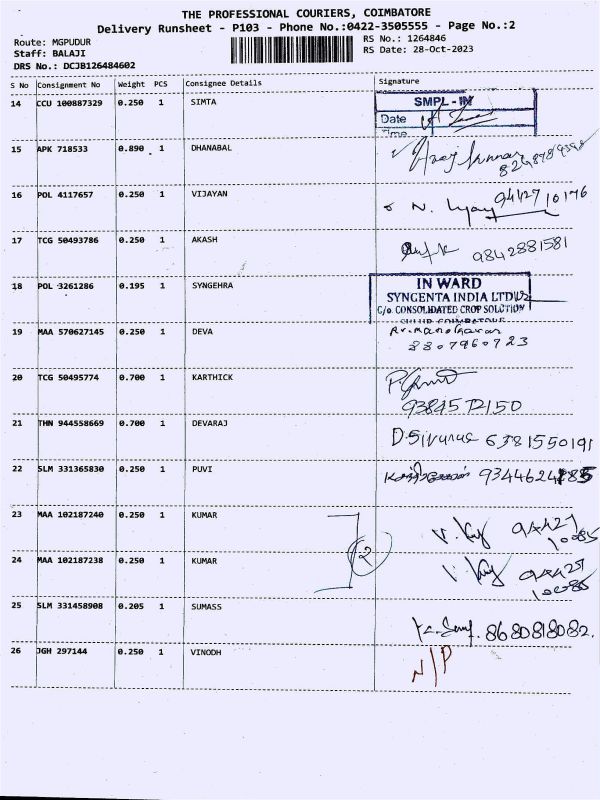 THE PROFESSIONAL COURIERS, COIMBATORE
Delivery Runsheet - P103 - Phone No.:0422-3505555 - Page No.:2
Route: MGPUDUR RS No.: 1264846
Staff: BALAJI RS Date: 28-Oct-2023
DRS No.: DCJB126484602
S No Consignment No Weight PCS Consignee Details Signature
14 CCU 100887329 0.250 1 SIMTA SMPL - IN
Date
Time
15 APK 718533 0.890 1 DHANABAL
16 POL 4117657 0.250 1 VIJAYAN 9442710176
17 TCG 50493786 0.250 1 AKASH 9842881581
18 POL 3261286 0.195 1 SYNGEHRA IN WARD
SYNGENTA INDIA LTD
C/o. CONSOLIDATED CROP SOLUTION
19 MAA 570627145 0.250 1 DEVA Rv.manoharan
8807960723
20 TCG 50495774 0.700 1 KARTHICK
9384572150
21 THN 944558669 0.700 1 DEVARAJ 6381550191
22 SLM 331365830 0.250 1 PUVI
23 MAA 102187240 0.250 1 KUMAR 94427
10085
2
24 MAA 102187238 0.250 1 KUMAR 94427
10085
25 SLM 331458908 0.205 1 SUMASS 8680818082.
26 JGH 297144 0.250 1 VINODH N/P